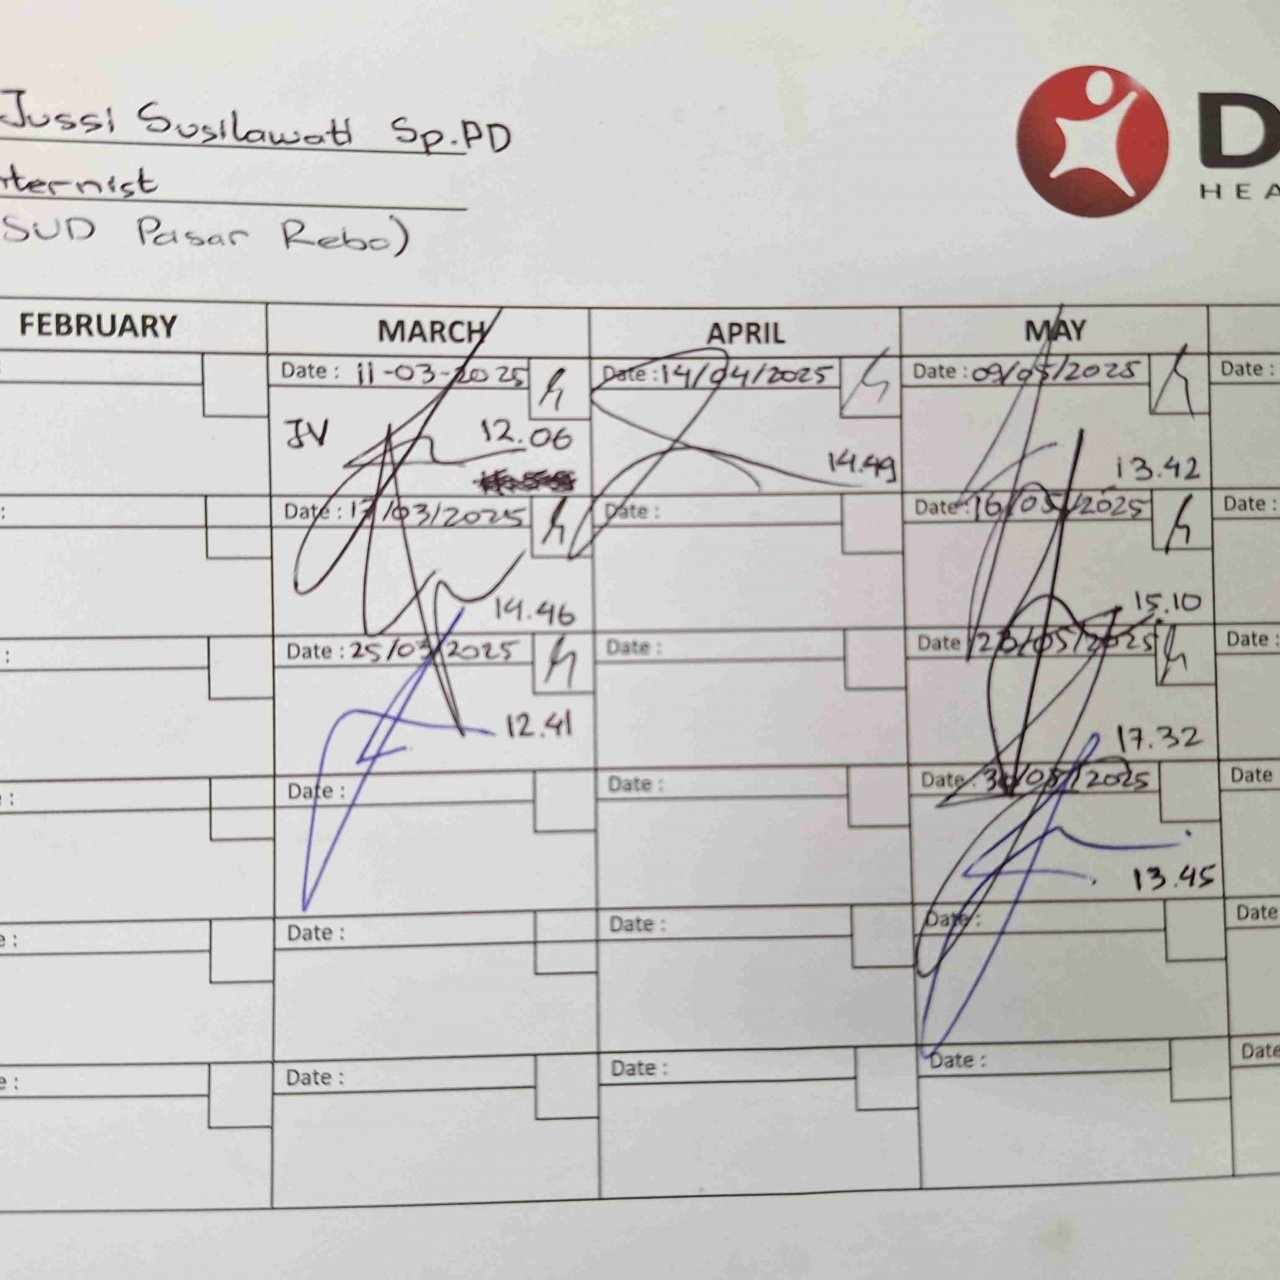 Jussi Susilawati Sp.PD
ternist
SUD Pasar Rebo)
D
HEA
FEBRUARY MARCH APRIL MAY
Date : 11-03-2025 Date : 14/04/2025 Date : 09/05/2025 Date :
JV 12.06 14.49 13.42
: Date : /03/2025 Date : Date : 16/05/2025 Date :
14.46 15.10
: Date : 25/03/2025 Date : Date /05/2025 Date :
12.41 17.32
: Date : Date : Date : 30/05/2025 Date
13.45
e : Date : Date : Date : Date
e : Date : Date : Date : Date